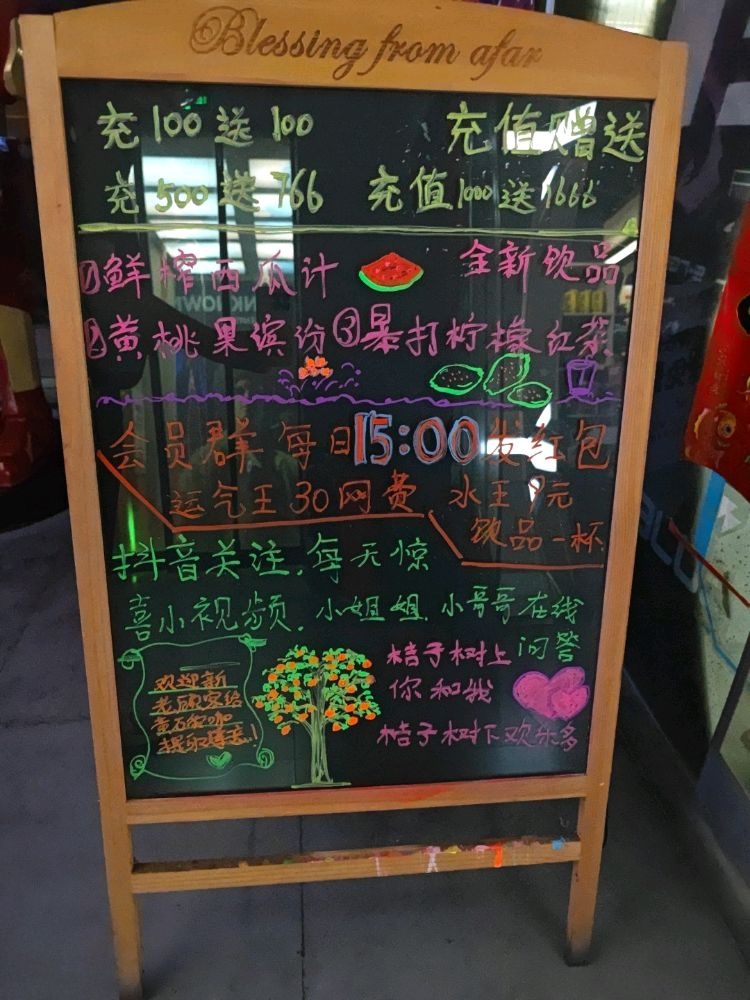 Blessing from afar
充100送100 充值赠送
充500送766 充值1000送1666
①鲜榨西瓜汁 全新饮品
②黄桃果缤纷③暴打柠檬红茶
会员群 每日15:00发红包
运气王30网费 水王9元
饮品一杯
抖音关注.每天惊
喜小视频.小姐姐.小哥哥在线
问答
桔子树上
你和我
桔子树下欢乐多
欢迎新
老顾客给